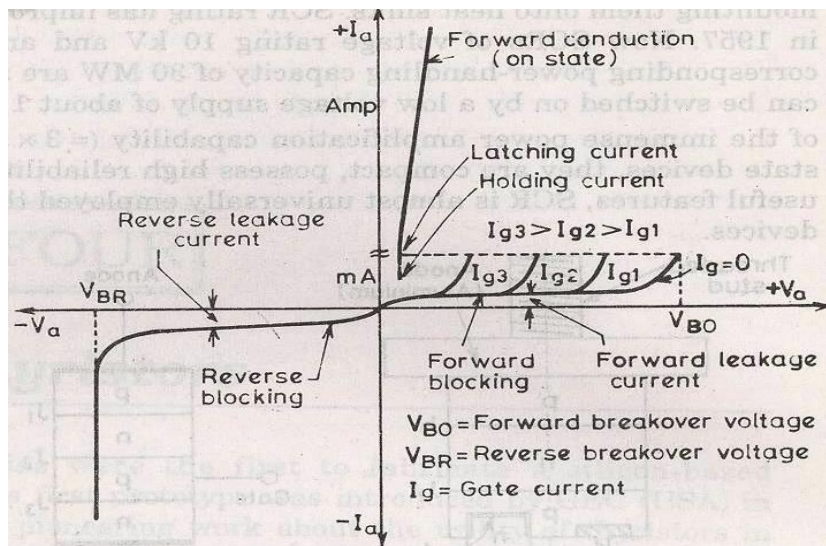 +Ia
Forward conduction
(on state)
Amp
Latching current
Holding current
Reverse leakage
current
Ig3 > Ig2 > Ig1
mA
Ig3
Ig2
Ig1
Ig=0
VBR
+Va
-Va
VBO
Reverse
blocking
Forward
blocking
Forward leakage
current
VBO = Forward breakover voltage
VBR = Reverse breakover voltage
Ig = Gate current
-Ia